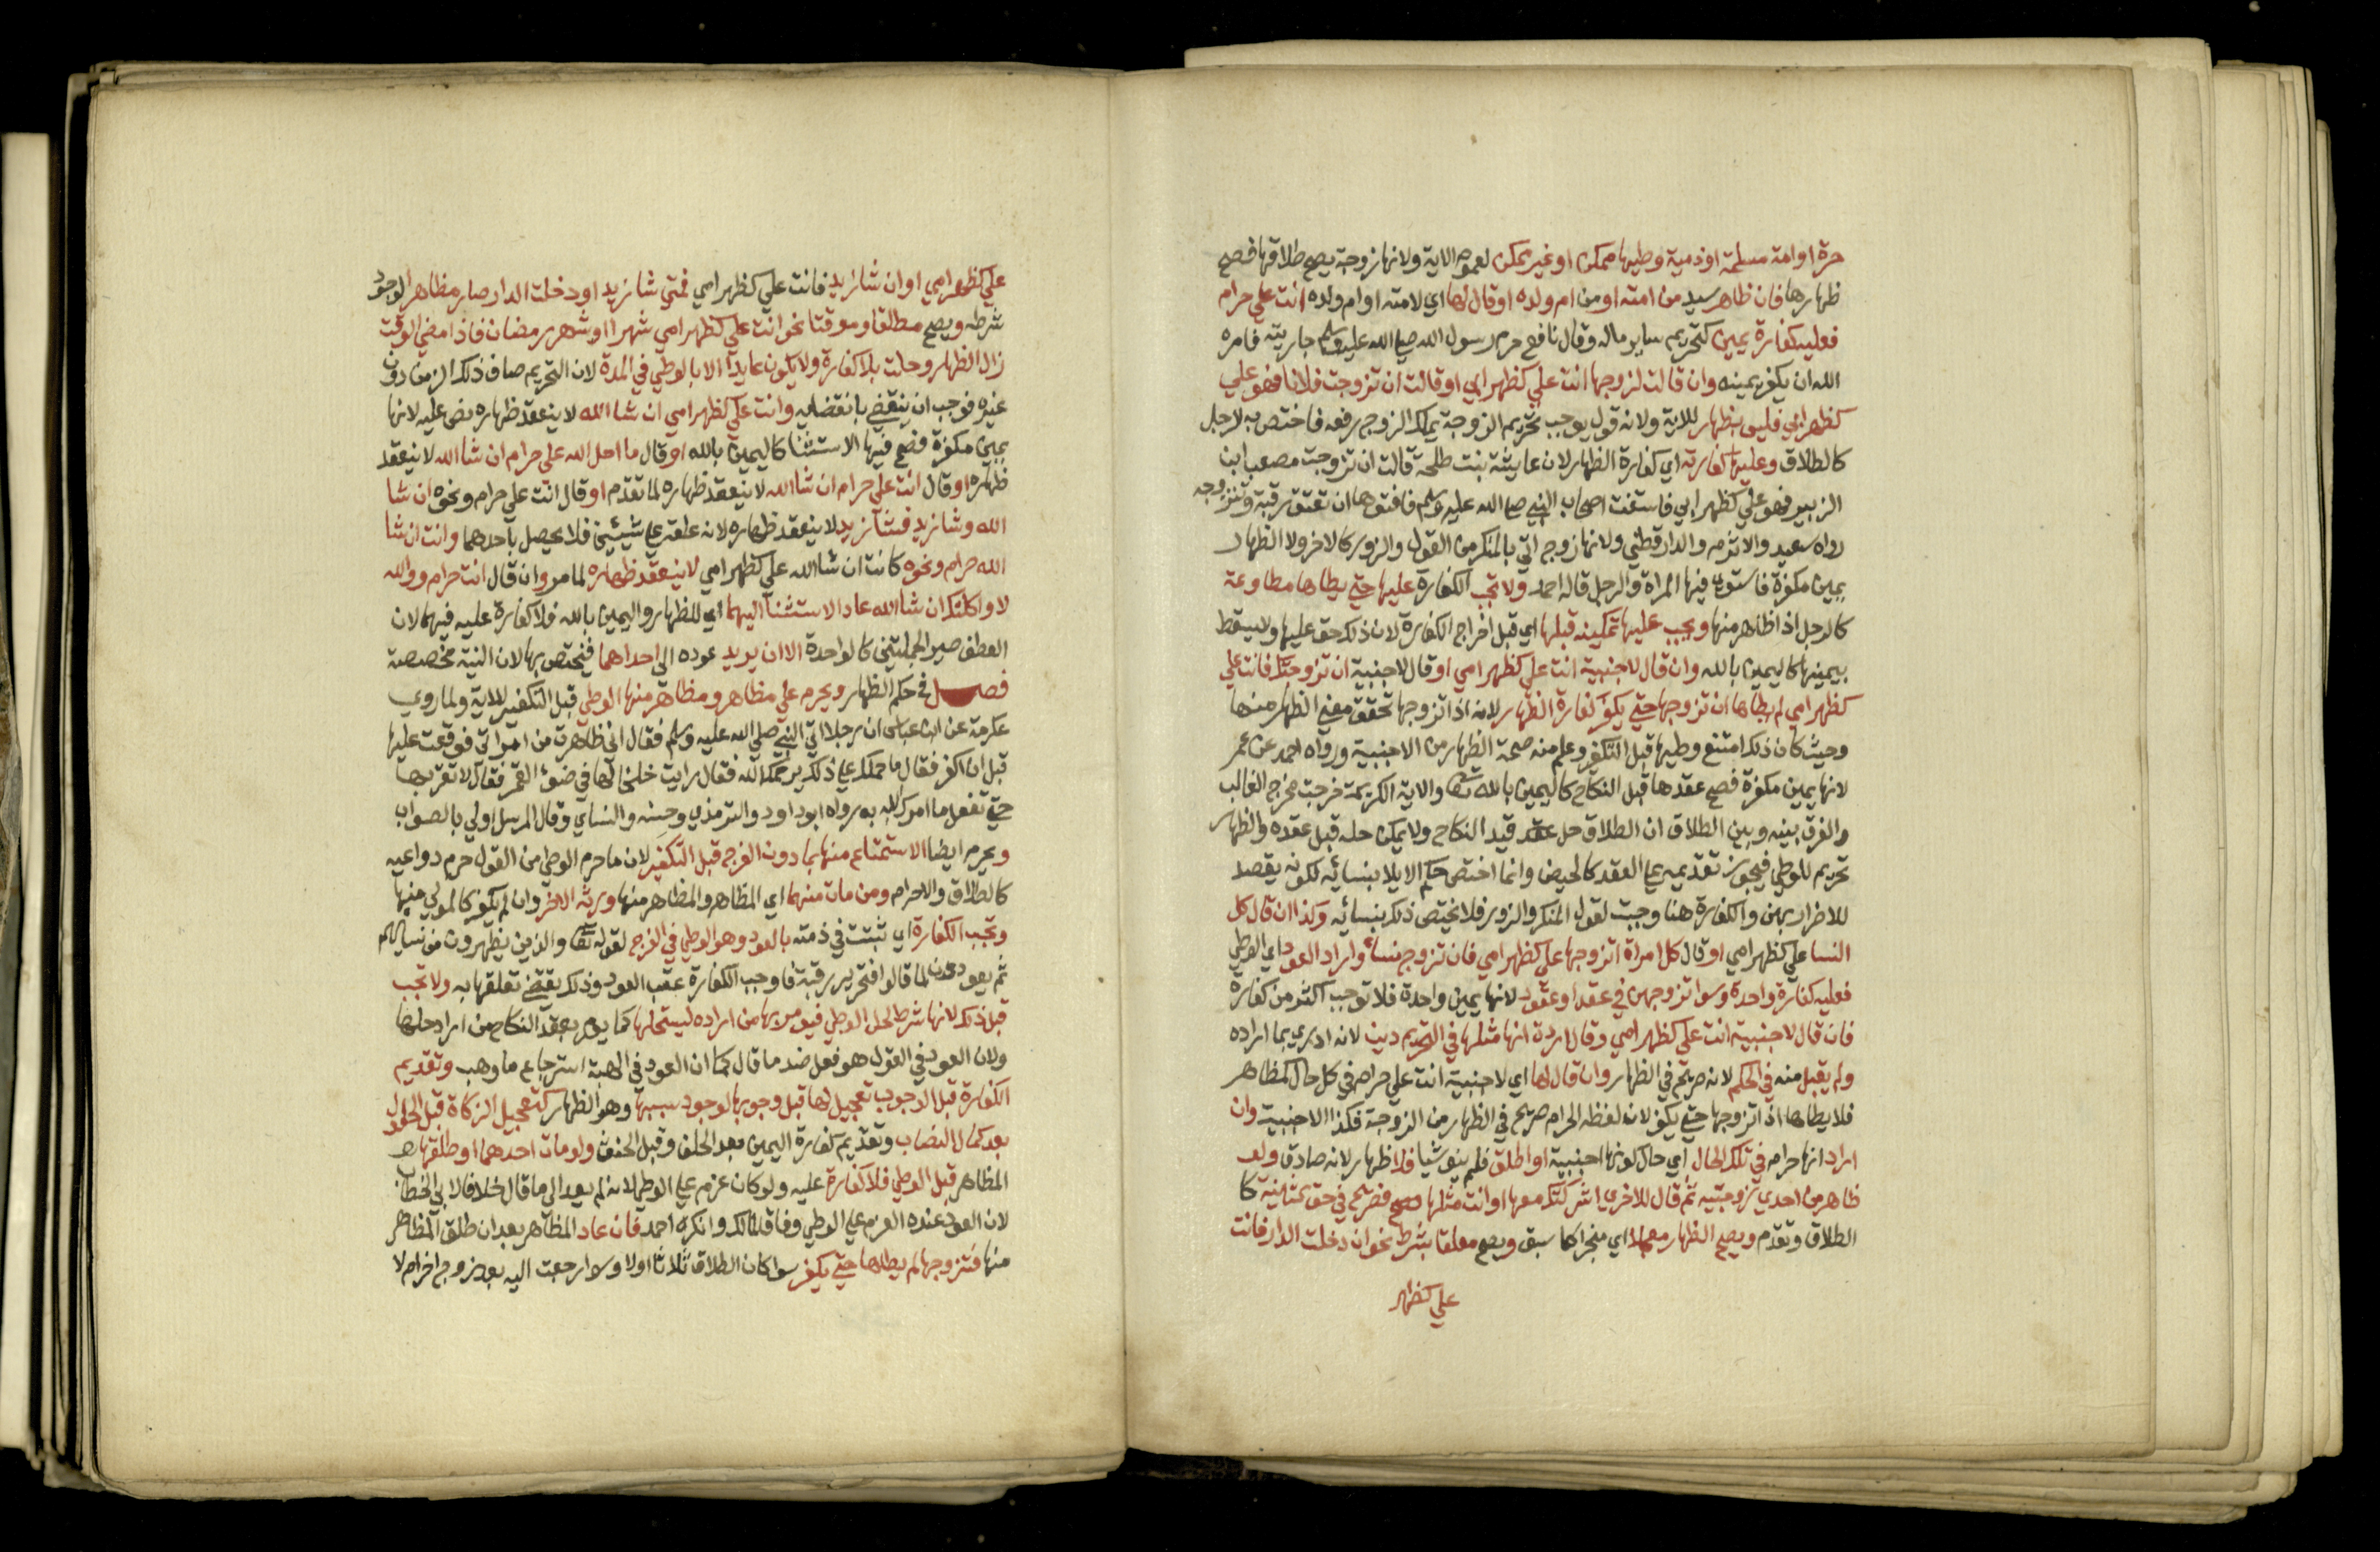 حرة او امة مسلمة او ذمية وطيها ممكن او غير ممكن لعموم الاية ولانها زوجة يصح طلاقها فصح
ظهارها فان ظاهر سيد من امته او من ام ولده او قال لها اي لامته او ام ولده انت علي حرام
فعليه كفارة يمين كتحريم ساير ماله وقال نافع حرم رسول الله صلى الله عليه وسلم جاريته فامره
الله ان يكفر يمينه وان قالت لزوجها انت علي كظهر ابي او قالت ان تزوجت فلانا فهو علي
كظهر ابي فليس بظهار للاية ولانه قول يوجب تحريم الزوجة يملك الزوج رفعه فاختص به لاجل
كالطلاق وعليها كفارته اي كفارة الظهار لان عايشة بنت طلحة قالت ان تزوجت مصعب ابن
الزبير فهو علي كظهر ابي فاستفت اصحاب النبي صلى الله عليه وسلم فافتوها ان تعتق رقبة وتتزوجه
رواه سعيد والاثرم والدارقطني ولانها زوج اتى بالمنكر من القول والزور كالاخر ولا الظهار
يمين مكفرة فاستوى فيها المراة والرجل قاله احمد ولا تجب الكفارة عليها حتى يطاها مطاوعة
كالرجل اذا ظاهر منها ويجب عليها تمكينه قبلها اي قبل اخراج الكفارة لان ذلك حق عليها ولا يسقط
بيمينها كاليمين بالله وان قال لاجنبية انت علي كظهر امي او قال لاجنبية ان تزوجتك فانت علي
كظهر امي لم يطاها ان تزوجها حتى يكفر كفارة الظهار لانه اذا تزوجها تحقق معنى الظهار منها
وحيث كان ذلك امتنع وطيها قبل التكفير وعلم منه صحة الظهار من الاجنبية ورواه احمد عن عمر
لانها يمين مكفرة فصح عقدها قبل النكاح كاليمين بالله تعالى والاية الكريمة خرجت مخرج الغالب
والفرق بينه وبين الطلاق ان الطلاق حل عقد قيد النكاح ولا يمكن حله قبل عقده والظهار
تحريم للوطي فيجوز تقديمه على العقد كالحيض وانما اختص حكم الايلا بنسائه لكونه يقصد
للاضرار بهن والكفارة هنا وجبت لقول المنكر والزور فلا يختص ذلك بنسائه وكذا ان قال كل
النسا علي كظهر امي او قال كل امراة اتزوجها علي كظهر امي فان تزوج نساء واراد العود اي الوطي
فعليه كفارة واحدة وسوا تزوجهن في عقد او عقود لانها يمين واحدة فلا توجب اكثر من كفارة
فان قال لاجنبية انت علي كظهر امي وقال اردت انها مثلها في التحريم دين لانه ادرى بما اراده
ولم يقبل منه في الحكم لانه صريح في الظهار وان قال لها اي لاجنبية انت علي حرام في كل حال كمظاهر
فلا يطاها اذا تزوجها حتى يكفر لان لفظه الحرام صريح في الظهار من الزوجة فكذا الاجنبية وان
اراد انها حرام في تلك الحال اي حال كونها اجنبية او اطلق فلم ينو شيا فلا ظهار لانه صادق ولو
ظاهر من احدي زوجتيه ثم قال للاخري اشركتك معها او انت مثلها فصريح في حق الثانية كا
الطلاق وتقدم ويصح الظهار معجلا اي منجزا كما سبق ويصح معلقا بشرط نحو ان دخلت الدار فانت
علي كظهر
علي كظهر امي او ان شا زيد فانت علي كظهر امي فمتى شا زيد او دخلت الدار صار مظاهرا لوجود
شرطه ويصح مطلقا وموقتا نحو انت علي كظهر امي شهرا او شهر رمضان فاذا مضى الوقت
زال الظهار وحلت بلا كفارة ولا يكون عايدا الا بالوطي في المدة لان التحريم صادف ذلك الزمن دون
غيره فوجب ان ينقضي بانقضايه وانت علي كظهر امي ان شا الله لا ينعقد ظهاره نص عليه لانها
يمين مكفرة فصح فيها الاستثنا كاليمين بالله او قال ما احل الله علي حرام ان شا الله لا ينعقد
ظهاره او قال انت علي حرام ان شا الله لا ينعقد ظهاره لما تقدم او قال انت علي حرام ونحوه ان شا
الله وشا زيد فشا زيد لا ينعقد ظهاره لانه علقه على شيئين فلا يحصل باحدهما وانت ان شا
الله حرام ونحوه كانت ان شا الله علي كظهر امي لا ينعقد ظهاره لما مر وان قال انت حرام ووالله
لا واكلتك ان شا الله عاد الاستثنا اليهما اي للظهار واليمين بالله فلا كفارة عليه فيهما لان
العطف صير الجملتين كالواحدة الا ان يريد عوده الى احداهما فيختص بها لان النية مخصصة
فصل في حكم الظهار ويحرم على مظاهر ومظاهر منها الوطي قبل التكفير للاية ولما روي
عكرمة عن ابن عباس ان رجلا اتى النبي صلى الله عليه وسلم فقال اني ظاهرت من امراتي فوقعت عليها
قبل ان اكفر فقال ما حملك على ذلك يرحمك الله فقال رايت خلخالها في ضوء القمر فقال لا تقربها
حتى تفعل ما امرك الله به رواه ابو داود والترمذي وحسنه والنساي وقال المرسل اولى بالصواب
ويحرم ايضا الاستمتاع منها بما دون الفرج قبل التكفير لان ما حرم الوطي من القول حرم دواعيه
كالطلاق والاحرام ومن مات منهما اي المظاهر والمظاهر منها ورثه الاخر وان لم يكفر كالمولي منها
وتجب الكفارة اي تثبت في ذمته بالعود وهو الوطي في الفرج لقوله تعالى والذين يظهرون من نسايهم
ثم يعودون لما قالوا فتحرير رقبة فاوجب الكفارة عقب العود وذلك يقتضي تعلقها به ولا تجب
قبل ذلك لانها شرط لحل الوطي فيومر بها من اراده ليستحلها كما يومر بعقد النكاح من اراد حلها
ولان العود في القول هو فعل ضد ما قال كما ان العود في الهبة استرجاع ما وهب وتقديم
الكفارة قبل الوجوب تعجيل لها قبل وجوبها لوجود سببها وهو الظهار كتعجيل الزكاة قبل الحلول
بعد كمال النصاب وتقديم كفارة اليمين بعد الحلف وقبل الحنث ولو مات احدهما او طلقها
المظاهر قبل الوطي فلا كفارة عليه ولو كان عزم على الوطي لانه لم يعد الى ما قال خلافا لابي الخطاب
لان العود عنده العزم على الوطي وفاقا لمالك وانكره احمد فان عاد المظاهر بعد ان طلق المظاهر
منها فتزوجها لم يطاها حتى يكفر سوا كان الطلاق ثلاثا او لا وسوا رجعت اليه بعد زوج اخر ام لا